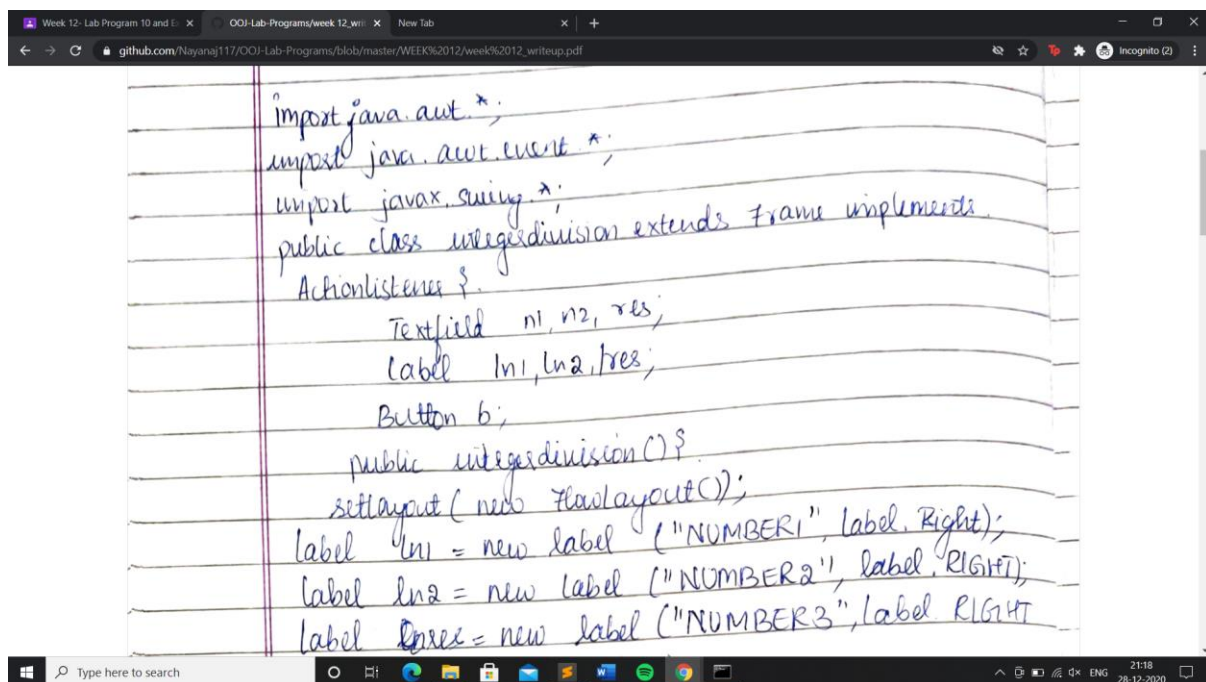 Week 12- Lab Program 10 and E
OOJ-Lab-Programs/week 12_wri
New Tab
github.com/Nayanaj117/OOJ-Lab-Programs/blob/master/WEEK%2012/week%2012_writeup.pdf
Incognito (2)
import java.awt.*;
import java.awt.event.*;
import javax.swing.*;
public class integerdivision extends Frame implements
Actionlistener {
Textfield n1, n2, res;
label ln1, ln2, lres;
Button b;
public integerdivision() {
setlayout ( new FlowLayout());
label ln1 = new label ("NUMBER1", label. Right);
label ln2 = new label ("NUMBER2", label. RIGHT);
label = new label ("NUMBER3", label RIGHT
Type here to search
ENG
21:18
28-12-2020